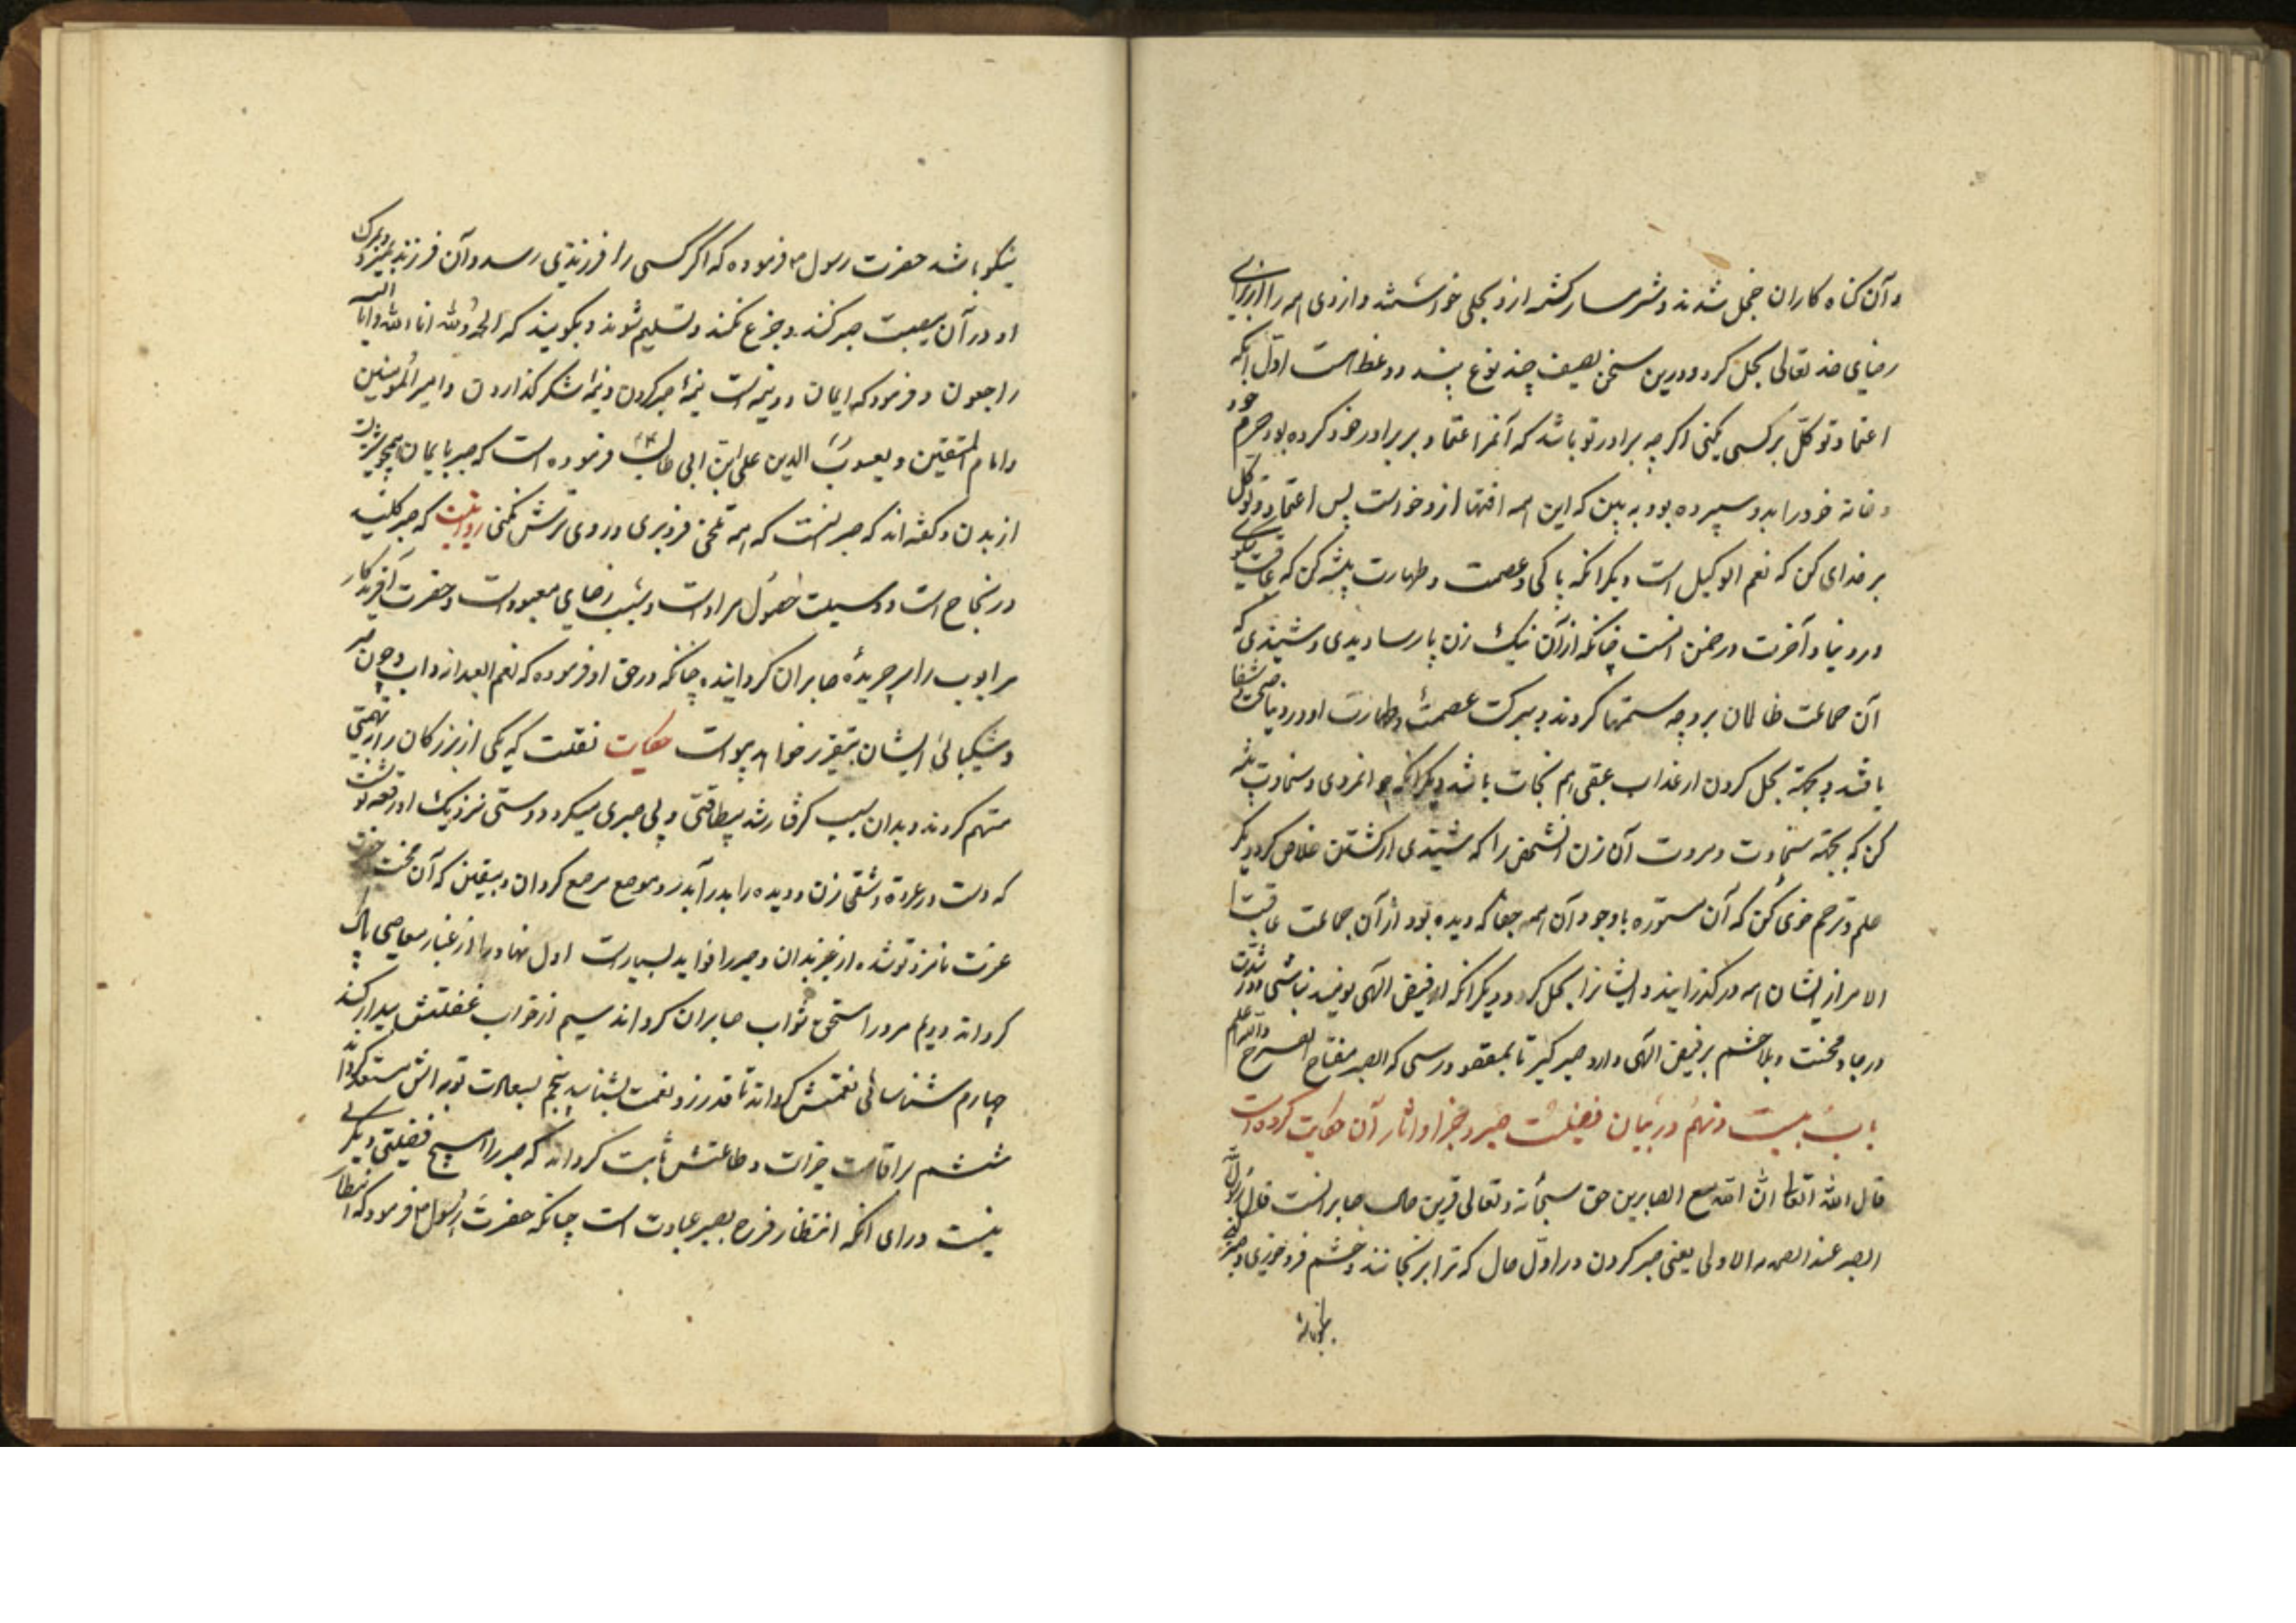 و آن کناه کاران خجل شدند و شرمسار کشته ازو بحلی خواستند و از وی همه را از برای
رضای خد تعالی بحل کرد و درین سخن بصیف چند نوع پند و وعظ است اوّل آنکه
اعتماد و توکّل بر کسی نکنی اکر چه برادر تو باشد که آنمرد اعتماد بر برادر خود کرده بود حرم خود
و خانه خود را بدو سپرده بود به بین که این همه افتها ازو خواست پس اعتماد و توکل
بر خدای کن که نعم الوکیل است دیکر انکه پاکی و عصمت و طهارت پیشه کن که عاقبت نیکویی
در دنیا و آخرت در ضمن انست چنانکه از آن نیک زن پارسا دیدی و شنیدی که
آن جماعت ظالمان بر وچه ستمها کردند ببرکت عصمت و طهارت او در دنیا صحت شفا
یافتند و بجهة بحل کردن از عذاب عقبی هم نجات باشد دیکر انکه جوانمردی و سخاوت پیشه
کن که بجهة سخاوت و مروت آن زن انشخص را که شنیدی از کشتن خلاص کرد دیکر
حلم و ترحم خوی کن که آن مستوره با وجود آن همه جفا که دیده بود از آن جماعت عاقبة
الامر از ایشان همه در کذرانید و ایشانرا بحل کرد و دیکر انکه از فیض الهی نومید نباشی و در شدّت
و رجا و محنت و بلا چشم بر فیض الهی دار و صبر کیر تا بمقصود رسی که الصبر مفتاح الفرج والله اعلم
باب بیست و نهم در بیان فضیلت صبر و جزا و اثار آن حکایت کرده است
قال الله تعالی انّ الله مع الصابرین حق سبحانه و تعالی قرین حال صابرانست قال رسول الله
الصبر عند الصدمه الاولی یعنی صبر کردن در اوّل حال که ترا برنجانند و خشم فرو خوری و صبر کنی
نیکو باشد حضرت رسول م فرموده که اکر کسی را فرزندی رسد و آن فرزند بمیرد و بمرک
او در آن مصیبت صبر کند و جزع نکند و تسلیم شوند و بکویند که الحمد لله انا لله و انا الیه
راجعون و فرمود که ایمان دو نیمه است نیمهٔ صبر کردن و نیمهٔ شکر کذاردن و امیر المؤمنین
و امام المتقین و یعسوب الدین علی ابن ابی طالب فرموده است که صبر با ایمان همچو سریست
از بدن و کفته اند که صبر انست که همه تلخی فرو بری و روی ترش نکنی روایت که صبر کلید
در نجاح است و وسیلت حصول مراد است و سبب رضای معبود است و حضرت آفریدکار
مر ایوب را سر جریدهٔ صابران کردانیده چنانکه در حق او فرموده که نعم العبد انه اواب و چون
و شکیبائی ایشان بتقریر خواهد پیوست حکایت نقلست که یکی از بزرکان را تهمتی
متهم کردند و بدان سبب کرفتار شد بیطاقتی و بی صبری میکرد دوستی نزدیک او رقعه نوشت
که دست در عروة وثقی زن و دیده را بدر آید و موضع مرصع کردان و بیقین که آن محنت
عزت نامزد تو شده از عزیزان و صبر را فواید بسیارست اول نهاد را از غبار معاصی پاک
کرداند دویم مرد را مستحق ثواب صابران کرداند سیم از خواب غفلتش بیدار کند
چهارم شناسائی نعمتش کرداند تا قدر زود نعمت بشناسد پنجم بسعادت توبه اش مستعد کرداند
ششم بر اقامت خیرات و طاعتش ثابت کرداند که صبر را هیچ فضیلتی دیکر
نیست ورای انکه انتظار فرج بصبر عبادت است چنانکه حضرت رسول م فرمود که انتظار